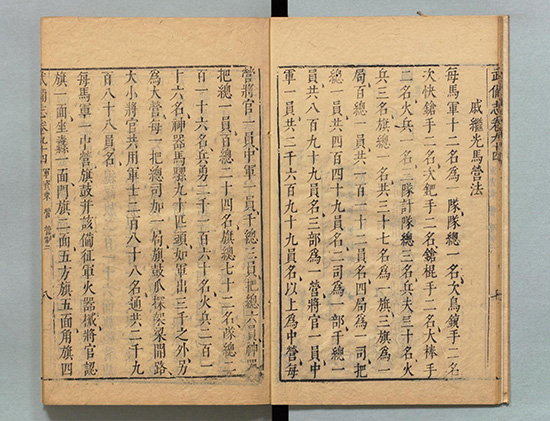 武備志卷九十四
七
戚繼光馬營法
每馬軍十二名爲一隊隊總一名次鳥銃手二名
次快鎗手二名次鈀手二名鎗棍手二名大棒手
二名火兵一名三隊計隊總三名兵夫三十名火
兵三名旗總一名共三十七名爲一旗三旗爲一
局百總一員共一百一十二員名四局爲一司把
總一員共四百四十九員名二司爲一部千總一
員共八百九十九員名三部爲一營將官一員中
軍一員共二千六百九十九員名以上爲中營每
營將官一員中軍一員千總三員把總六員
把總一員百總二十四名旗總七十二名隊總二
百一十六名兵勇二千一百六十名火兵二百一
十六名神器馬騾九十匹頭如軍出三千之外另
爲大營每一把總司加一局旗鼓爪探架梁開路
大小將官共用軍士二百八十八名通共二千九
百八十八員名
每馬軍一中營旗鼓并該備征軍火器械將官認
旗一面坐纛一面門旗二面五方旗五面角旗四
武備志卷九十四
八